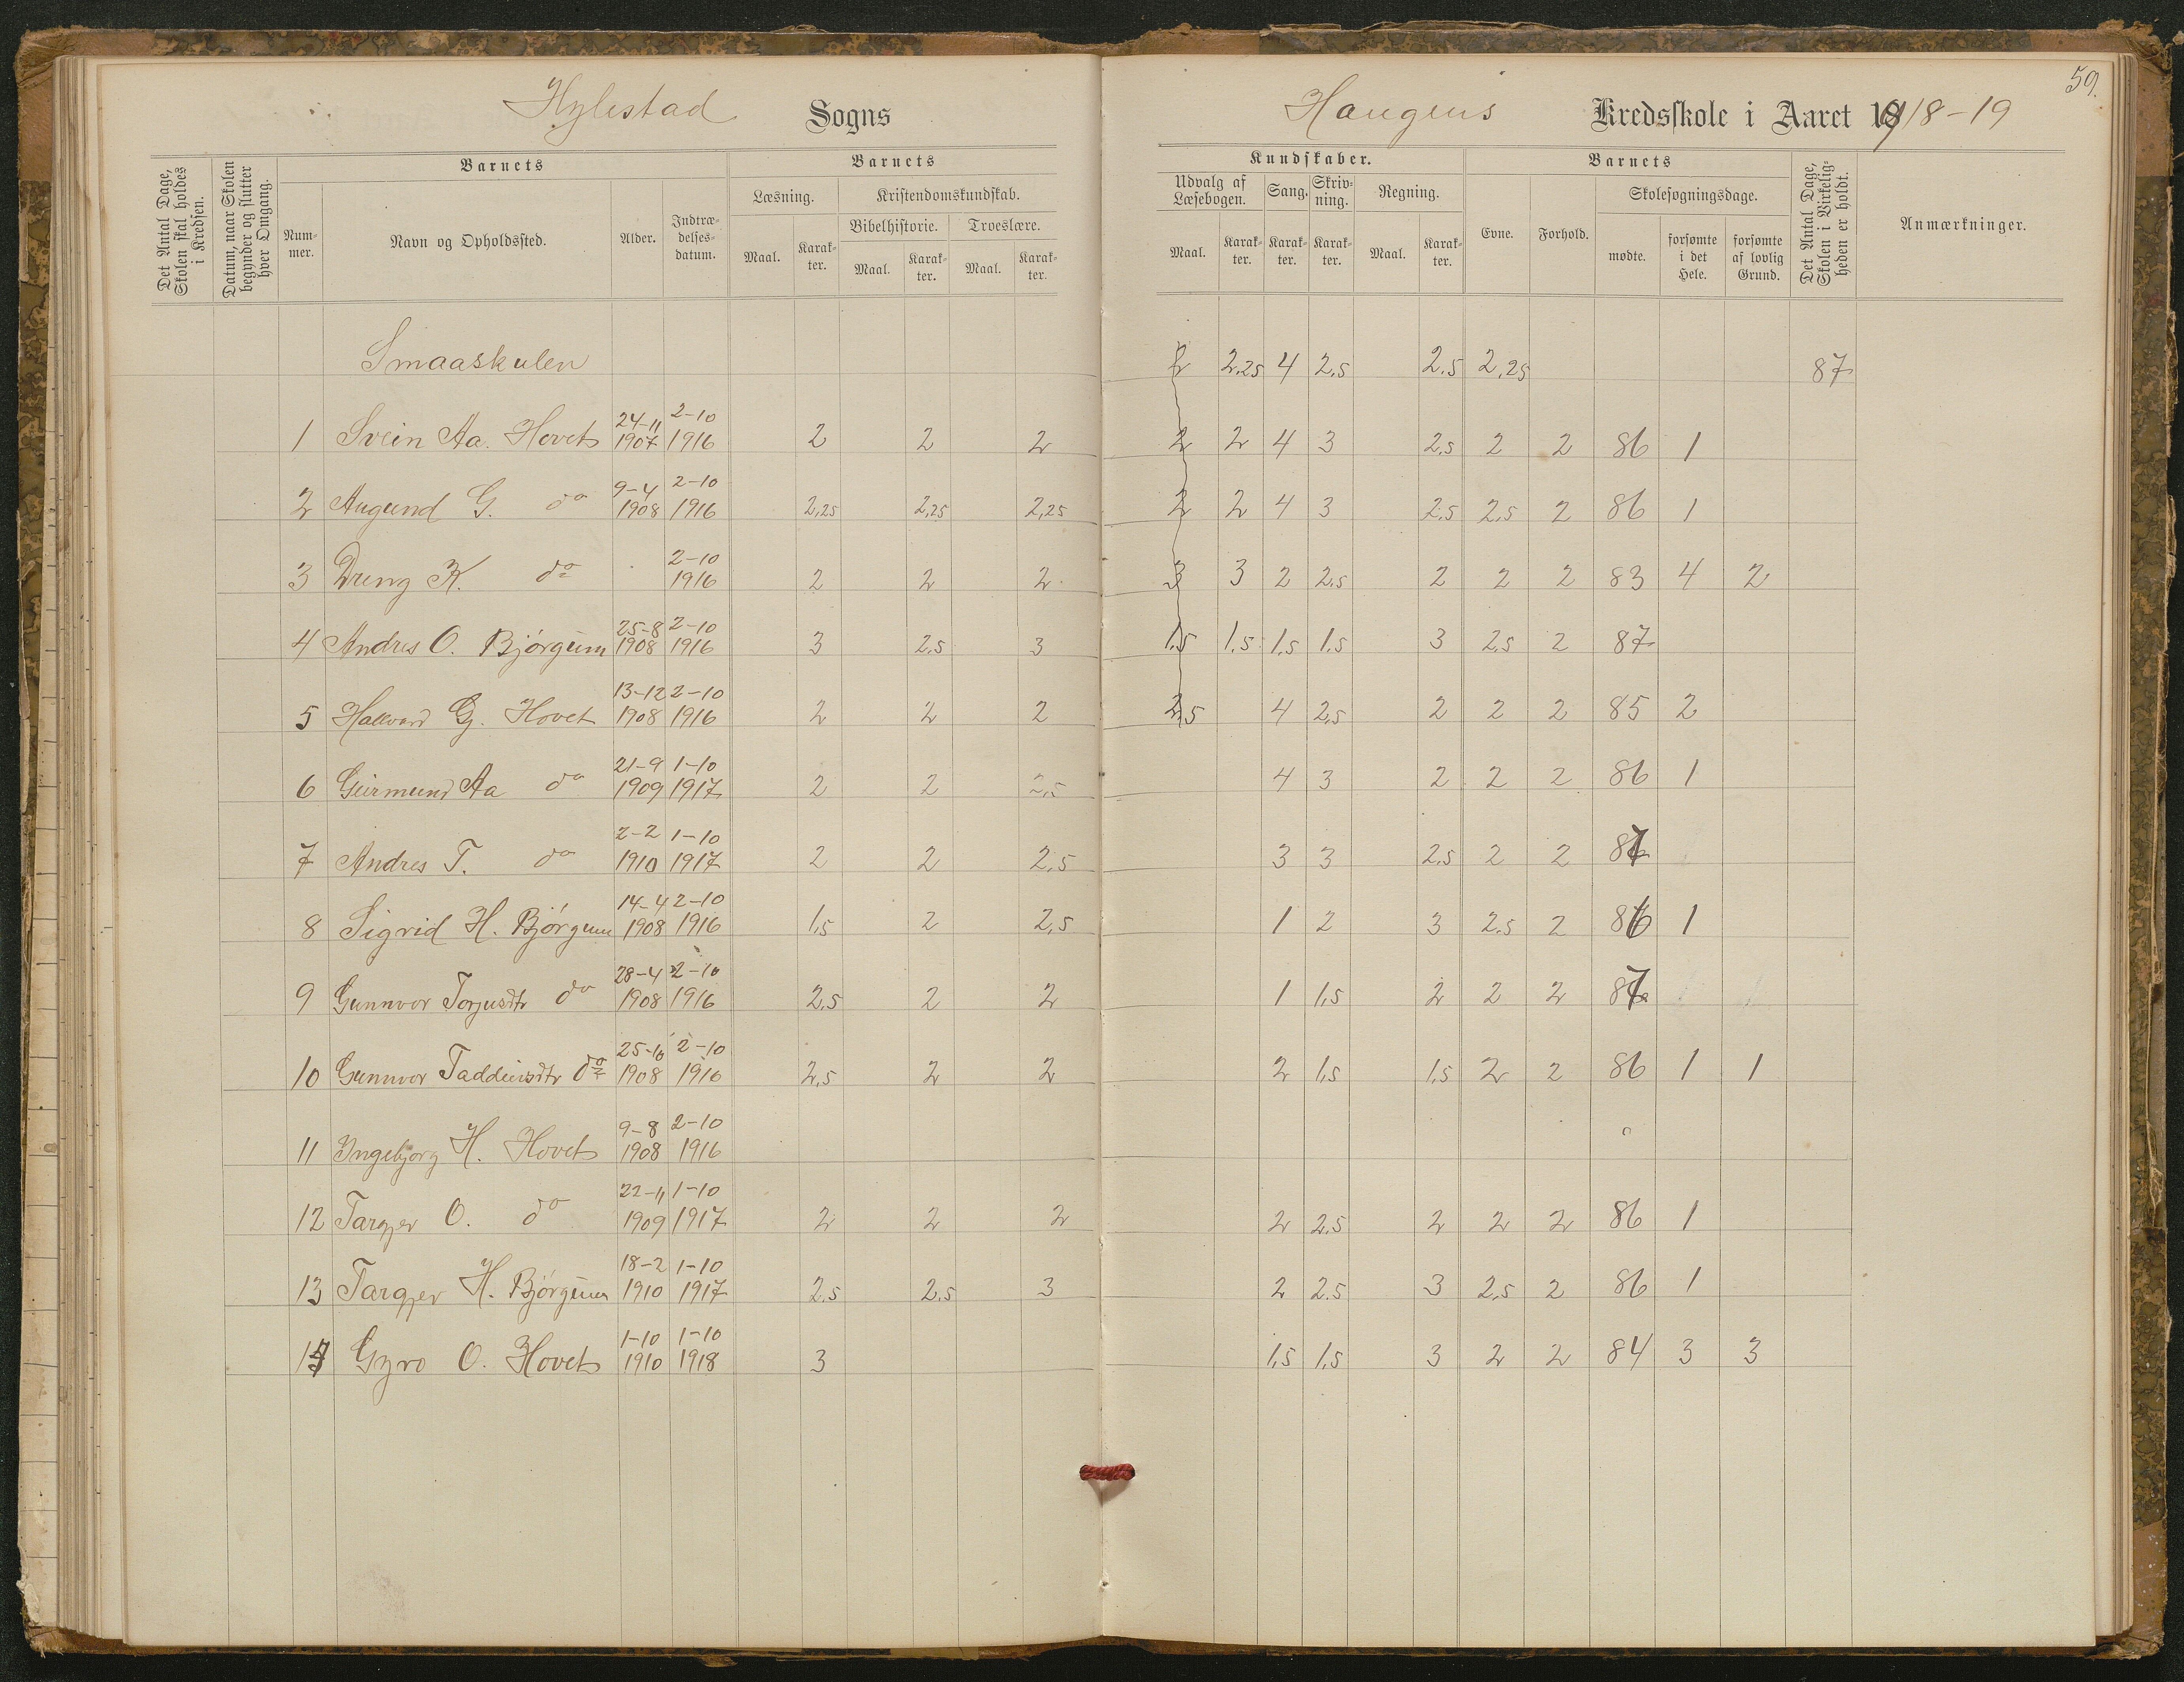 59.
Hylestad Sogns
Haugens Kredsskole i Aaret 1918-19
Det Antal Dage, Skolen skal holdes i Kredsen.
Datum, naar Skolen begynder og slutter hver Omgang.
Barnets
Nummer.
Navn og Opholdssted.
Alder.
Indtrædelsesdatum.
Barnets
Læsning.
Kristendomskundskab.
Bibelhistorie. Troeslære.
Maal. Karakter. Maal. Karakter. Maal. Karakter.
Kundskaber.
Udvalg af Læsebogen. Sang. Skrivning. Regning.
Maal. Karakter. Karakter. Karakter. Maal. Karakter.
Barnets
Evne. Forhold.
Skolesøgningsdage.
mødte. forsømte i det Hele. forsømte af lovlig Grund.
Det Antal Dage, Skolen i Virkeligheden er holdt.
Anmærkninger.
Smaaskulen 2 2.25 4 2.5 2.5 2.25 87
1 Svein Aa. Hovet 24-11 1907 2-10 1916 2 2 2 2 2 4 3 2.5 2 2 86 1
2 Augund G. do 9-4 1908 2-10 1916 2,25 2,25 2,25 2 2 4 3 2.5 2.5 2 86 1
3 Dreng K. do 2-10 1916 2 2 2 3 3 2 2.5 2 2 2 83 4 2
4 Andres O. Bjørgum 25-8 1908 2-10 1916 3 2.5 3 1.5 1.5 1.5 1.5 3 2.5 2 87
5 Hallvard G. Hovet 13-12 1908 2-10 1916 2 2 2 2.5 4 2.5 2 2 2 85 2
6 Geirmund Aa do 21-9 1909 1-10 1917 2 2 2.5 4 3 2 2 2 86 1
7 Andres T. do 2-2 1910 1-10 1917 2 2 2.5 3 3 2.5 2 2 87
8 Sigrid H. Bjørgum 14-4 1908 2-10 1916 1,5 2 2,5 1 2 3 2.5 2 86 1
9 Gunnvor Torjusdtr do 28-4 1908 2-10 1916 2,5 2 2 1 1,5 2 2 2 87
10 Gunnvor Taddeivsdtr do 25-10 1908 2-10 1916 2,5 2 2 2 1,5 1,5 2 2 86 1 1
11 Ingebjorg H. Hovet 9-8 1908 2-10 1916
12 Targjer O. do 22-11 1909 1-10 1917 2 2 2 2 2.5 2 2 2 86 1
13 Targjer H. Bjørgum 18-2 1910 1-10 1917 2.5 2.5 3 2 2.5 3 2.5 2 86 1
14 Gyro O. Hovet 1-10 1910 1-10 1918 3 1,5 1,5 3 2 2 84 3 3